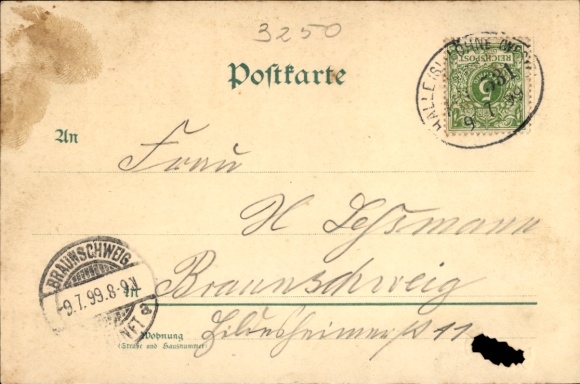 3250
HALLE (S.) LÖHNE (WESTF.)
REICHSPOST
5
9 7 99
Postkarte
An
Frau
H Lessmann
BRAUNSCHWEIG
-9.7.99.8-9.V.
In Braunschweig
Hildesheimerstr 11
Wohnung
(Straße und Hausnummer)